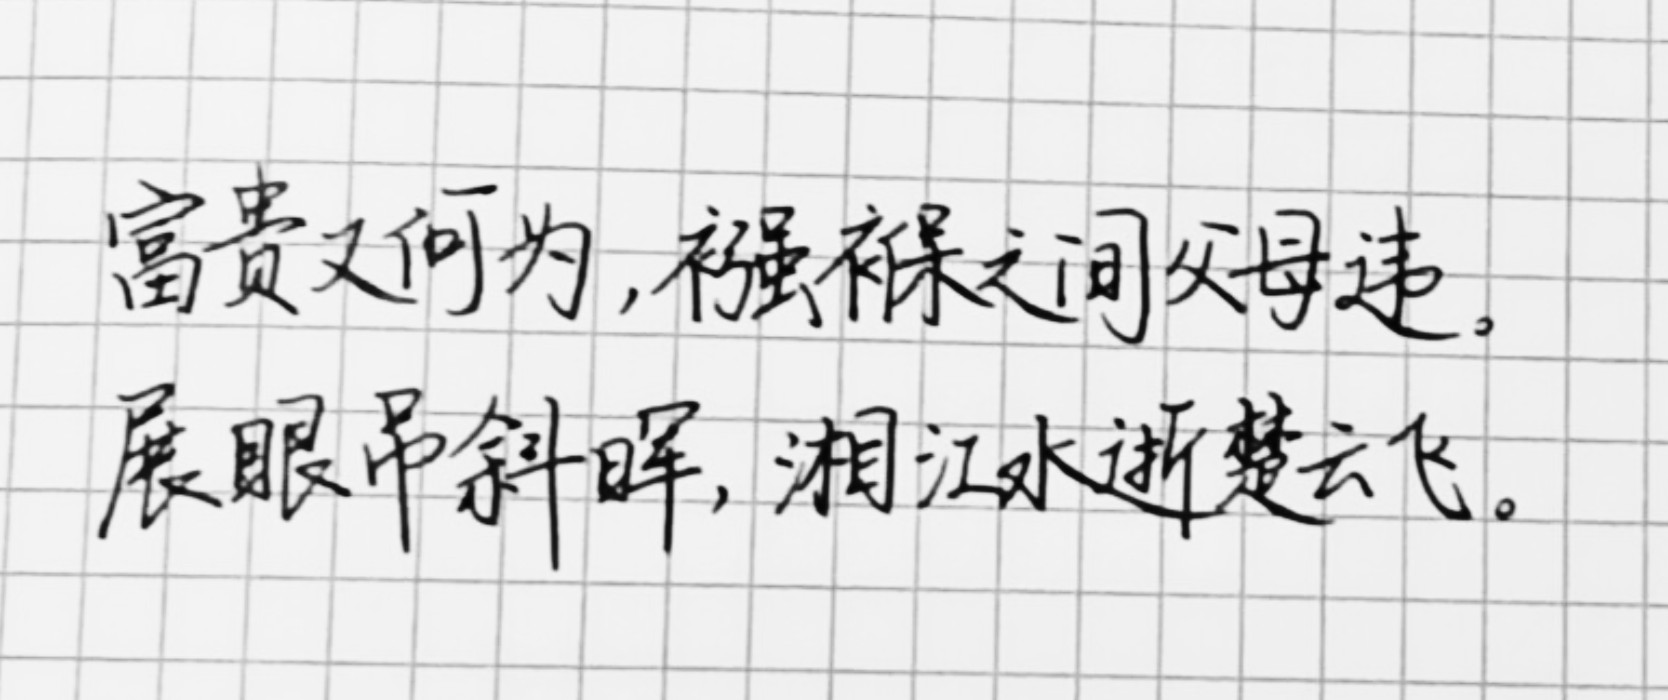 富贵又何为，襁褓之间父母违。
展眼吊斜晖，湘江水逝楚云飞。